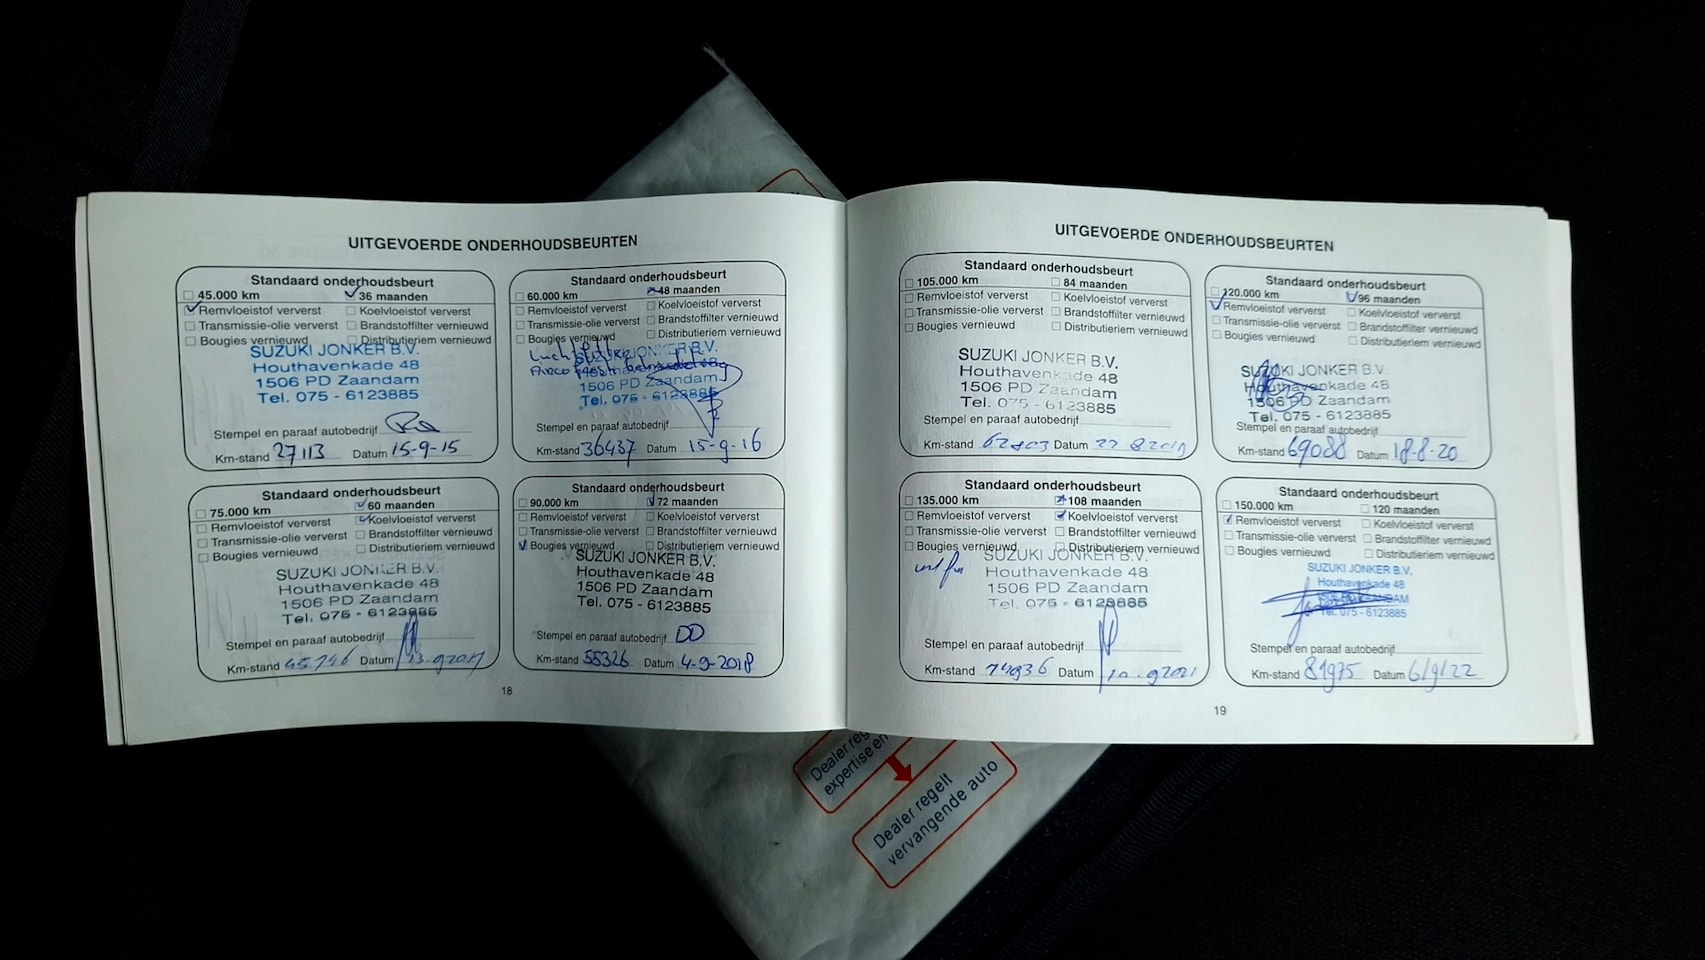 UITGEVOERDE ONDERHOUDSBEURTEN
Standaard onderhoudsbeurt
45.000 km 36 maanden
Remvloeistof ververst Koelvloeistof ververst
Transmissie-olie ververst Brandstoffilter vernieuwd
Bougies vernieuwd Distributieriem vernieuwd
SUZUKI JONKER B.V.
Houthavenkade 48
1506 PD Zaandam
Tel. 075 - 6123885
Stempel en paraaf autobedrijf
Km-stand 27113 Datum 15-9-15
Standaard onderhoudsbeurt
60.000 km 48 maanden
Remvloeistof ververst Koelvloeistof ververst
Transmissie-olie ververst Brandstoffilter vernieuwd
Bougies vernieuwd Distributieriem vernieuwd
SUZUKI JONKER B.V.
Houthavenkade 48
1506 PD Zaandam
Tel. 075 - 6123885
Stempel en paraaf autobedrijf
Km-stand 36437 Datum 15-9-16
Standaard onderhoudsbeurt
75.000 km 60 maanden
Remvloeistof ververst Koelvloeistof ververst
Transmissie-olie ververst Brandstoffilter vernieuwd
Bougies vernieuwd Distributieriem vernieuwd
SUZUKI JONKER B.V.
Houthavenkade 48
1506 PD Zaandam
Tel. 075 - 6123885
Stempel en paraaf autobedrijf
Km-stand Datum 13-9-2017
Standaard onderhoudsbeurt
90.000 km 72 maanden
Remvloeistof ververst Koelvloeistof ververst
Transmissie-olie ververst Brandstoffilter vernieuwd
Bougies vernieuwd Distributieriem vernieuwd
SUZUKI JONKER B.V.
Houthavenkade 48
1506 PD Zaandam
Tel. 075 - 6123885
Stempel en paraaf autobedrijf DD
Km-stand 55326 Datum 4-9-2018
18
UITGEVOERDE ONDERHOUDSBEURTEN
Standaard onderhoudsbeurt
105.000 km 84 maanden
Remvloeistof ververst Koelvloeistof ververst
Transmissie-olie ververst Brandstoffilter vernieuwd
Bougies vernieuwd Distributieriem vernieuwd
SUZUKI JONKER B.V.
Houthavenkade 48
1506 PD Zaandam
Tel. 075 - 6123885
Stempel en paraaf autobedrijf
Km-stand 62803 Datum
Standaard onderhoudsbeurt
120.000 km 96 maanden
Remvloeistof ververst Koelvloeistof ververst
Transmissie-olie ververst Brandstoffilter vernieuwd
Bougies vernieuwd Distributieriem vernieuwd
SUZUKI JONKER B.V.
Houthavenkade 48
1506 PD Zaandam
Tel. 075 - 6123885
Stempel en paraaf autobedrijf
Km-stand 69088 Datum 18-8-20
Standaard onderhoudsbeurt
135.000 km 108 maanden
Remvloeistof ververst Koelvloeistof ververst
Transmissie-olie ververst Brandstoffilter vernieuwd
Bougies vernieuwd Distributieriem vernieuwd
SUZUKI JONKER B.V.
Houthavenkade 48
1506 PD Zaandam
Tel. 075 - 6123885
Stempel en paraaf autobedrijf
Km-stand 74936 Datum
Standaard onderhoudsbeurt
150.000 km 120 maanden
Remvloeistof ververst Koelvloeistof ververst
Transmissie-olie ververst Brandstoffilter vernieuwd
Bougies vernieuwd Distributieriem vernieuwd
SUZUKI JONKER B.V.
Houthavenkade 48
1506 PD ZAANDAM
Tel. 075 - 6123885
Stempel en paraaf autobedrijf
Km-stand 81975 Datum 6/9/22
19
Dealer
expertise en
Dealer regelt
vervangende auto